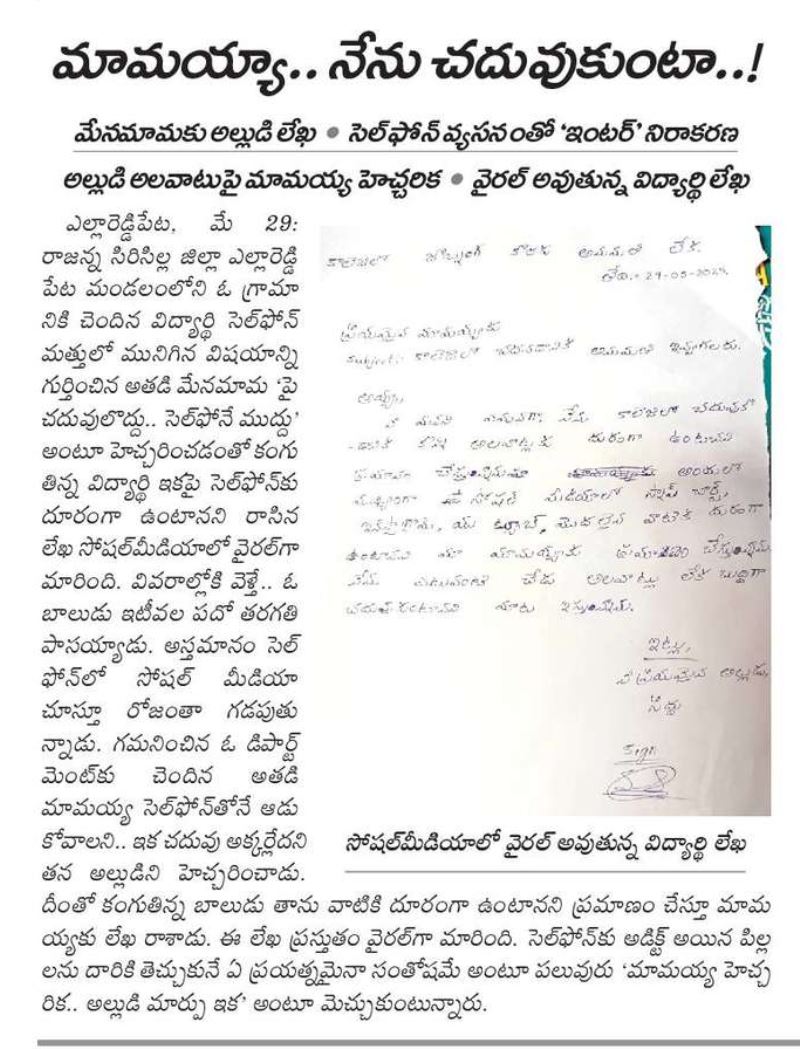 మామయ్యా.. నేను చదువుకుంటా..!
మేనమామకు అల్లుడి లేఖ ● సెల్‌ఫోన్ వ్యసనంతో ‘ఇంటర్’ నిరాకరణ
అల్లుడి అలవాటుపై మామయ్య హెచ్చరిక ● వైరల్ అవుతున్న విద్యార్థి లేఖ
ఎల్లారెడ్డిపేట, మే 29:
రాజన్న సిరిసిల్ల జిల్లా ఎల్లారెడ్డి
పేట మండలంలోని ఓ గ్రామా
నికి చెందిన విద్యార్థి సెల్‌ఫోన్
మత్తులో మునిగిన విషయాన్ని
గుర్తించిన అతడి మేనమామ ‘పై
చదువులొద్దు.. సెల్‌ఫోనే ముద్దు’
అంటూ హెచ్చరించడంతో కంగు
తిన్న విద్యార్థి ఇకపై సెల్‌ఫోన్‌కు
దూరంగా ఉంటానని రాసిన
లేఖ సోషల్‌మీడియాలో వైరల్‌గా
మారింది. వివరాల్లోకి వెళ్తే.. ఓ
బాలుడు ఇటీవల పదో తరగతి
పాసయ్యాడు. అస్తమానం సెల్
ఫోన్‌లో సోషల్ మీడియా
చూస్తూ రోజంతా గడపుతు
న్నాడు. గమనించిన ఓ డిపార్ట్
మెంట్‌కు చెందిన అతడి
మామయ్య సెల్‌ఫోన్‌తోనే ఆడు
కోవాలని.. ఇక చదువు అక్కర్లేదని
తన అల్లుడిని హెచ్చరించాడు.
దీంతో కంగుతిన్న బాలుడు తాను వాటికి దూరంగా ఉంటానని ప్రమాణం చేస్తూ మామ
య్యకు లేఖ రాశాడు. ఈ లేఖ ప్రస్తుతం వైరల్‌గా మారింది. సెల్‌ఫోన్‌కు అడిక్ట్ అయిన పిల్ల
లను దారికి తెచ్చుకునే ఏ ప్రయత్నమైనా సంతోషమే అంటూ పలువురు ‘మామయ్య హెచ్చ
రిక.. అల్లుడి మార్పు ఇక’ అంటూ మెచ్చుకుంటున్నారు.
కాలేజీలో జాయినింగ్ కొరకు అనుమతి లేఖ
తేది: 29-05-2025.
ప్రియమైన మామయ్యకు
subject: కాలేజీలో చదవడానికి అనుమతి ఇవ్వగలరు.
అయ్యా,
కాలేజిలో చదువుకో
అలవాట్లకు దూరంగా ఉంటానని
ప్రమాణం చేస్తున్నాను అందులో
ముఖ్యంగా సోషల్ మీడియాలో స్నాప్ చాట్,
ఇన్‌స్టాగ్రామ్, యు ట్యూబ్, మొదలైన వాటికి దూరంగా
ఉంటానని మా మామయ్యకు ప్రమాణం చేస్తున్నాను
నేను ఎటువంటి చేడు అలవాట్లు లేక బుద్ధిగా
చదువుకుంటానని మాట ఇస్తున్నాను.
ఇట్లు,
నీ ప్రియమైన అల్లుడు,
సిద్దు
Sign
సోషల్‌మీడియాలో వైరల్ అవుతున్న విద్యార్థి లేఖ